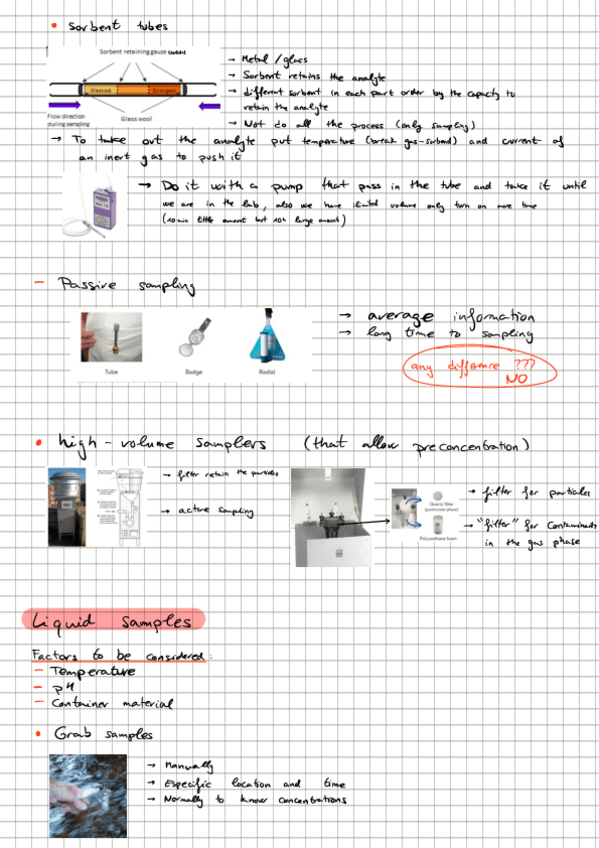 • Sorbent tubes
Sorbent retaining gauze
Weakest
Strongest
Flow direction
during sampling
Glass wool
→ Metal / glass
→ Sorbent retains the analyte
→ different sorbent in each part order by the capacity to
retain the analyte
→ Not do all the process (only sampling)
→ To take out the analyte put temperature (break gas-sorbent) and current of
an inert gas to push it
→ Do it with a pump that pass in the tube and take it until
we are in the lab, also we have limited volume only turn on more time
(10 min little amount but 10h large amount)
– Passive sampling
Tube
Badge
Radial
→ average information
→ long time to sampling
any difference ???
NO
• high-volume samplers (that allow preconcentration)
→ filter retain the particles
→ active sampling
Quartz filter
(particulate phase)
Polyurethane foam
→ filter for particles
→ "filter" for contaminants
in the gas phase
Liquid samples
Factors to be considered:
– Temperature
– pH
– Container material
• Grab samples
→ Manually
→ Especific location and time
→ Normally to know concentrations